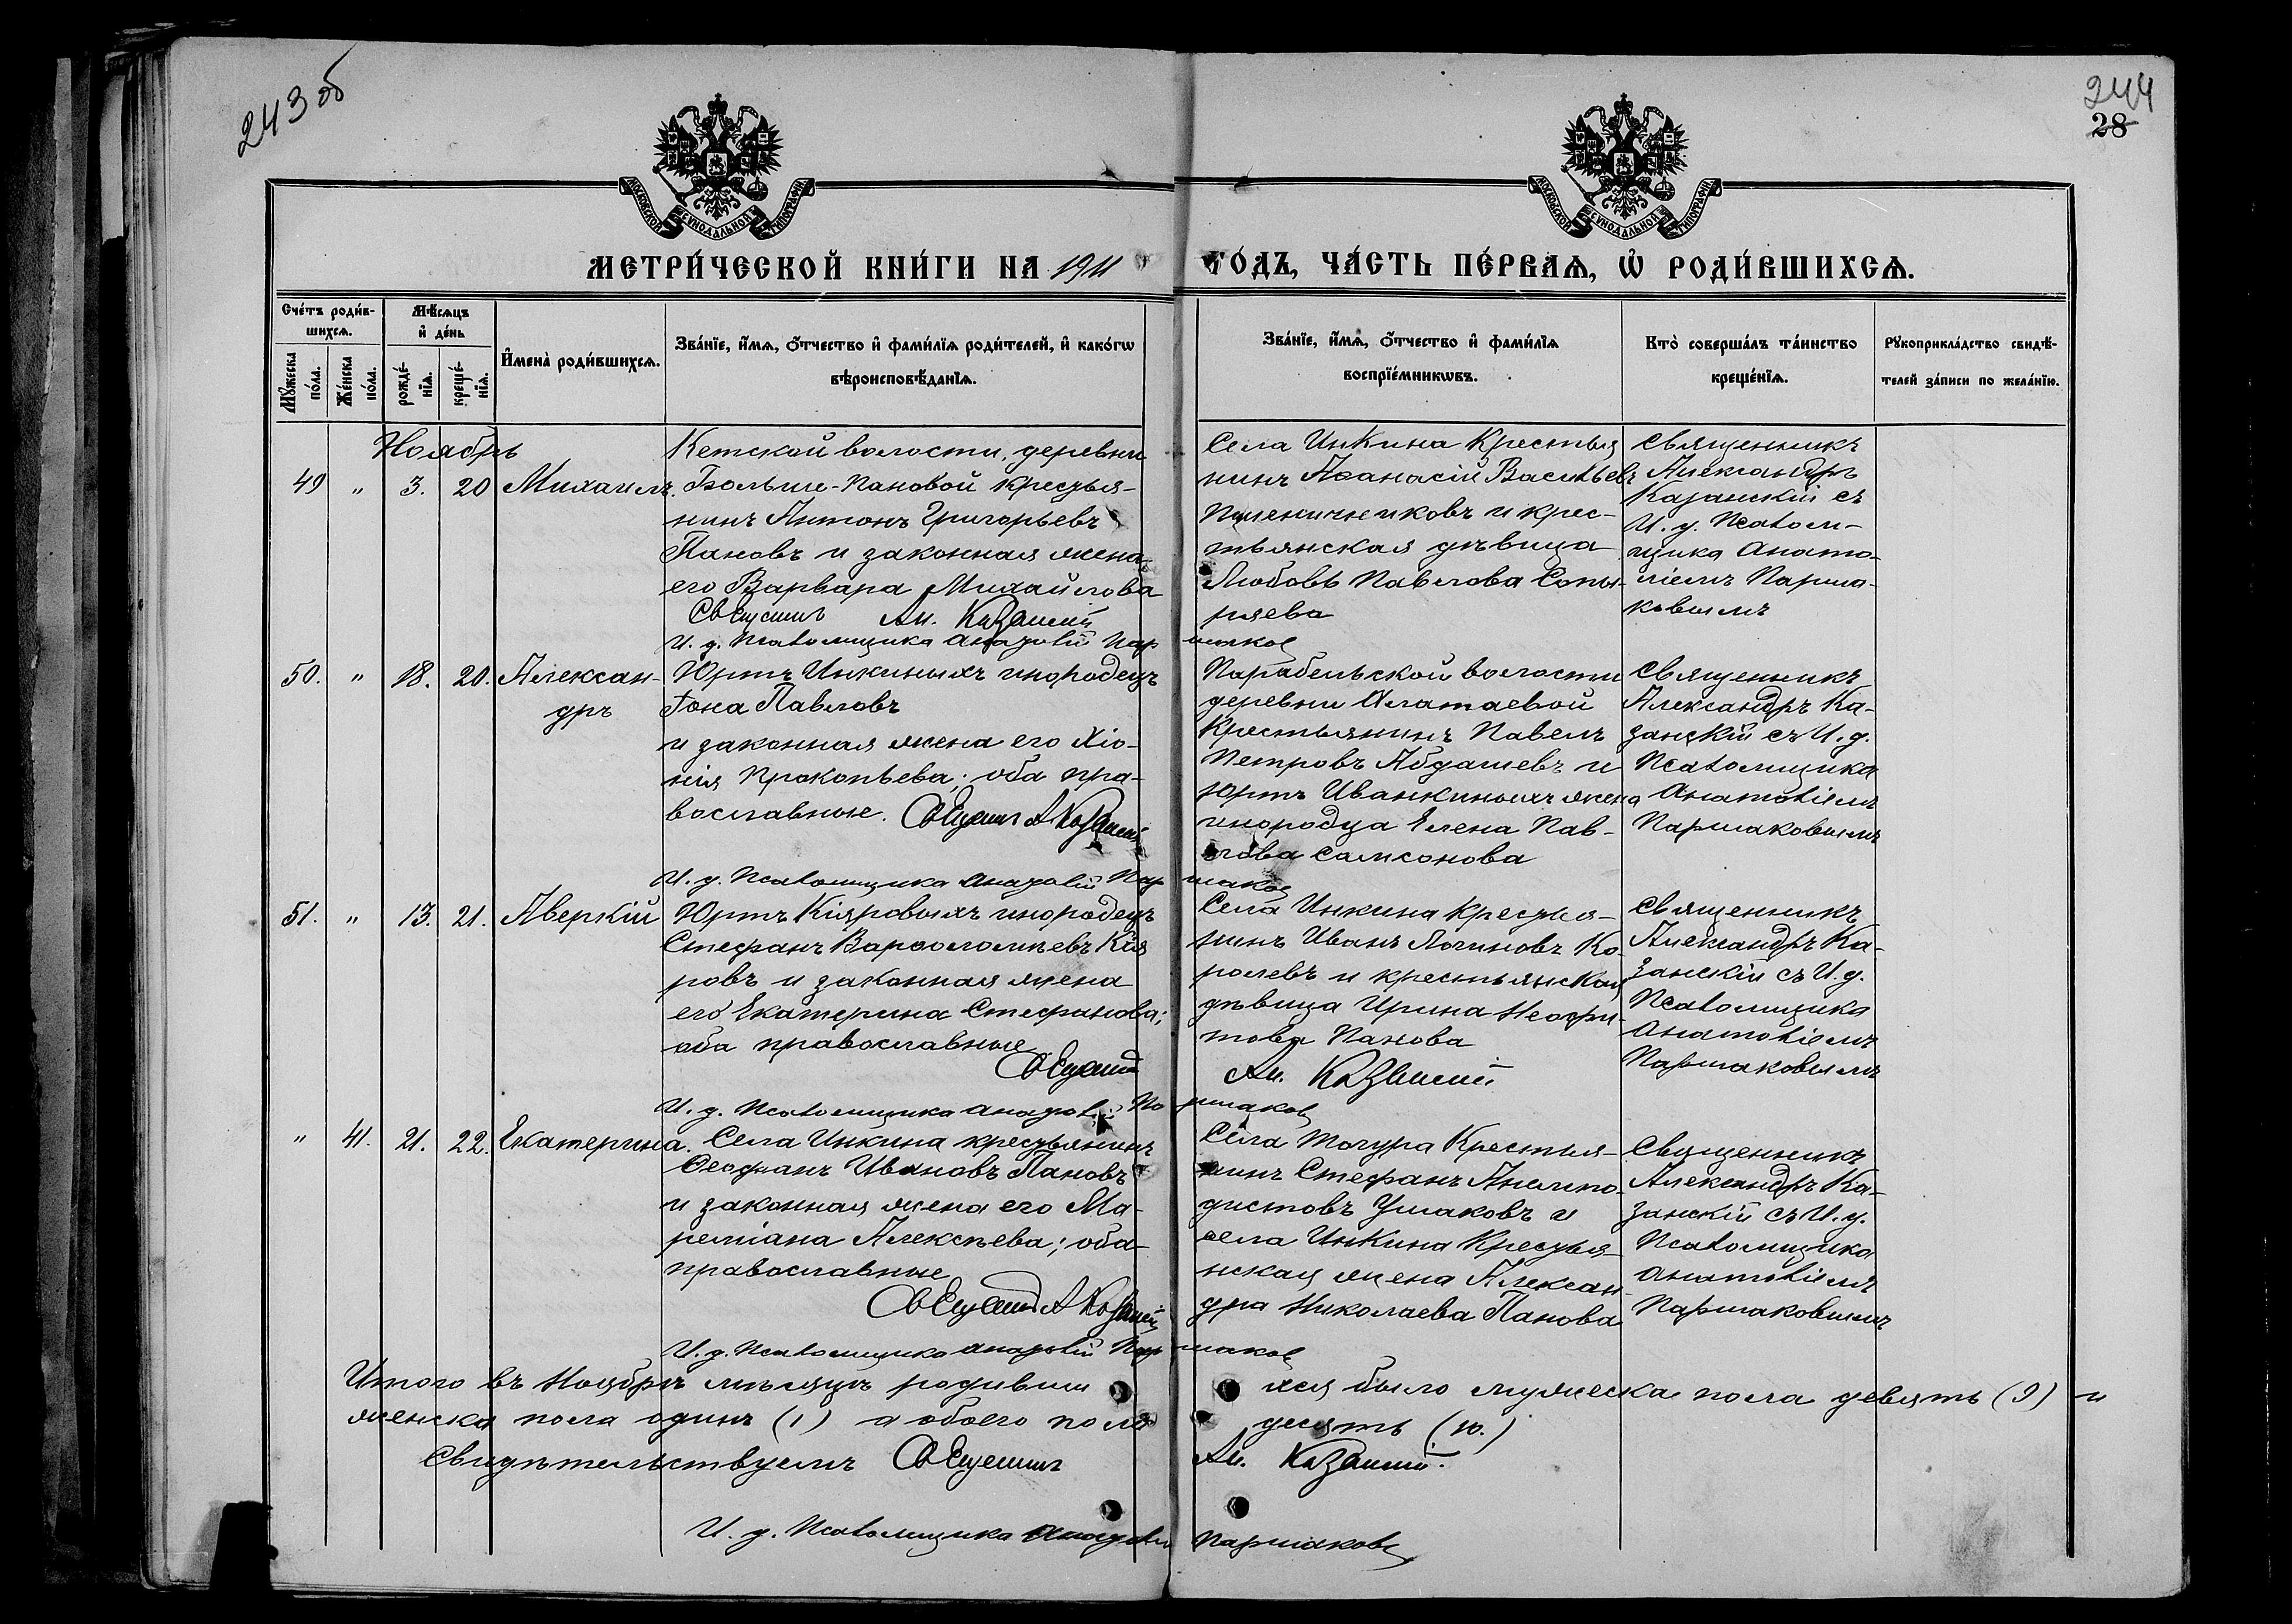 243 об
244
28
МОСКОВСКОЙ СѴНОДАЛЬНОЙ ТИПОГРАФІИ
МОСКОВСКОЙ СѴНОДАЛЬНОЙ ТИПОГРАФІИ
МЕТРИ́ЧЕСКОЙ КНИ́ГИ НА 1911 ГО́ДЪ, ЧА́СТЬ ПЕ́РВАѦ, Ѡ҆ РОДИ́ВШИХСѦ.
Сче́тъ роди́в-
шихсѧ.
Мꙋ́жеска по́ла.
Же́нска по́ла.
Мѣ́сѧцъ
и҆ де́нь
рожде́-
нїѧ.
креще́-
нїѧ.
И҆мена̀ роди́вшихсѧ.
Зва́нїе, и҆́мѧ, ѻ҆́тчество и҆ фами́лїѧ роди́телей, и҆ како́гѡ
вѣроисповѣ́данїѧ.
Зва́нїе, и҆́мѧ, ѻ҆́тчество и҆ фами́лїѧ
воспрїе́мникѡвъ.
Кто̀ соверша́лъ та́инство
креще́нїѧ.
Рꙋкоприкла́дство свидѣ́-
телей за́писи по жела́нїю.
Ноябрь
49 " 3. 20 Михаилъ.
Кетской волости, деревни
Больше-Пановой крестья-
нинъ Антонъ Григорьевъ
Пановъ и законная жена
его Варвара Михайлова
Священникъ Ал. Казанскій
И. д. Псаломщика Анатолій Паршаков
Села Инкина Крестья
нинъ Аѳанасій Васильевъ
Пшеничниковъ и крес-
тьянская дѣвица
Любовь Павлова Сопы-
ряева
Священникъ
Александръ
Казанскій съ
И. д. Псалом-
щика Анато-
ліемъ Парша-
ковымъ
50. " 18. 20. Алексан-
дръ
Юртъ Инкиныхъ инородецъ
Іона Павловъ
и законная жена его Хіо-
нія Прокопьева; оба пра-
вославные. Священникъ А. Казанскій
И. д. Псаломщика Анатолій Паршаков
Парабельской волости
деревни Алатаевой
Крестьянинъ Павелъ
Петровъ Абдашевъ и
юртъ Иванкиныхъ жена
инородца Елена Пав-
лова Самсонова
Священникъ
Александръ Ка-
занскій съ И. д.
Псаломщика
Анатоліемъ
Паршаковымъ
51. " 13. 21. Аверкій
Юртъ Кіяровыхъ инородецъ
Стефанъ Варѳоломѣевъ Кія
ровъ и законная жена
его Екатерина Стефанова;
оба православные
Священникъ Ал. Казанскій
И. д. Псаломщика Анатолій Паршаков
Села Инкина крестья-
нинъ Иванъ Логиновъ Ко-
ролевъ и крестьянская
дѣвица Ирина Неофи-
това Панова
Священникъ
Александръ Ка-
занскій съ И. д.
Псаломщика
Анатоліемъ
Паршаковымъ
" 41. 21. 22. Екатерина.
Села Инкина крестьянинъ
Ѳеофанъ Ивановъ Пановъ
и законная жена его Ма-
реміана Алексѣева; оба
православные
Священникъ А. Казанскій
И. д. Псаломщика Анатолій Паршаков
Села Тогура Крестья-
нинъ Стефанъ Анемпо-
дистовъ Ушаковъ и
села Инкина Крестья-
нская жена Алексан-
дра Николаева Панова
Священникъ
Александръ Ка-
занскій съ И. д.
Псаломщика
Анатоліемъ
Паршаковымъ
Итого въ Ноябрѣ мѣсяцѣ родивши хся было мужеска пола девять (9) и
женска пола одинъ (1) а обоего пола десять (10.)
Свидѣтельствуемъ Священникъ Ал. Казанскій.
И. д. Псаломщика Анатолій Паршаковъ